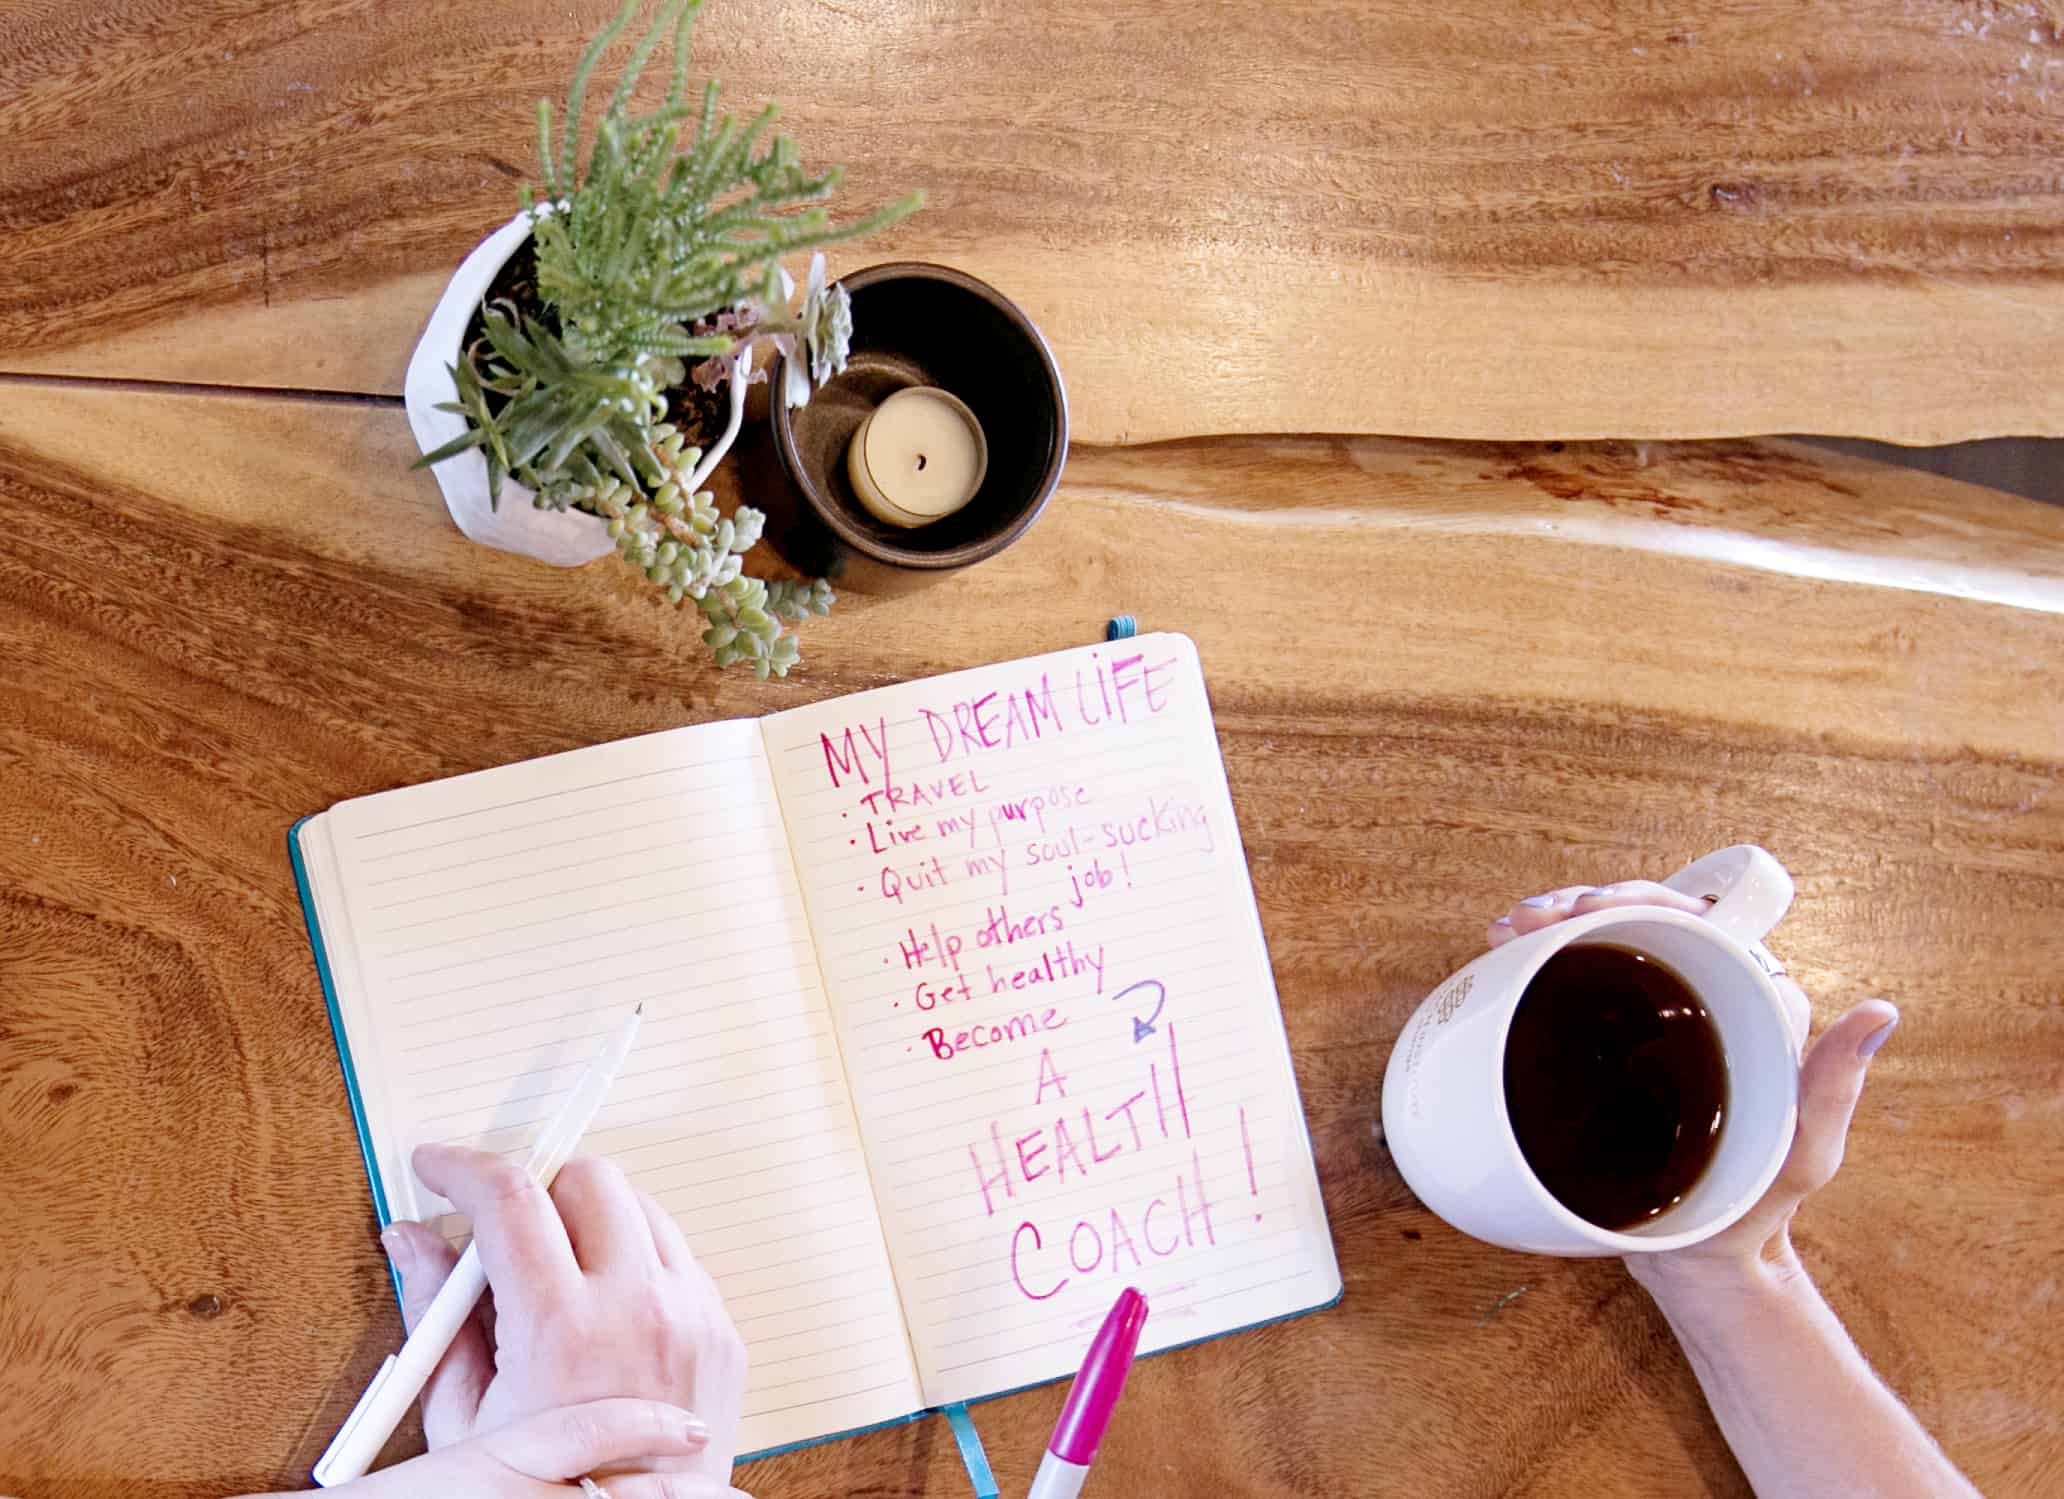 MY DREAM LIFE
· TRAVEL
· Live my purpose
· Quit my soul-sucking
job!
· Help others
· Get healthy
· Become
A
HEALTH
COACH!